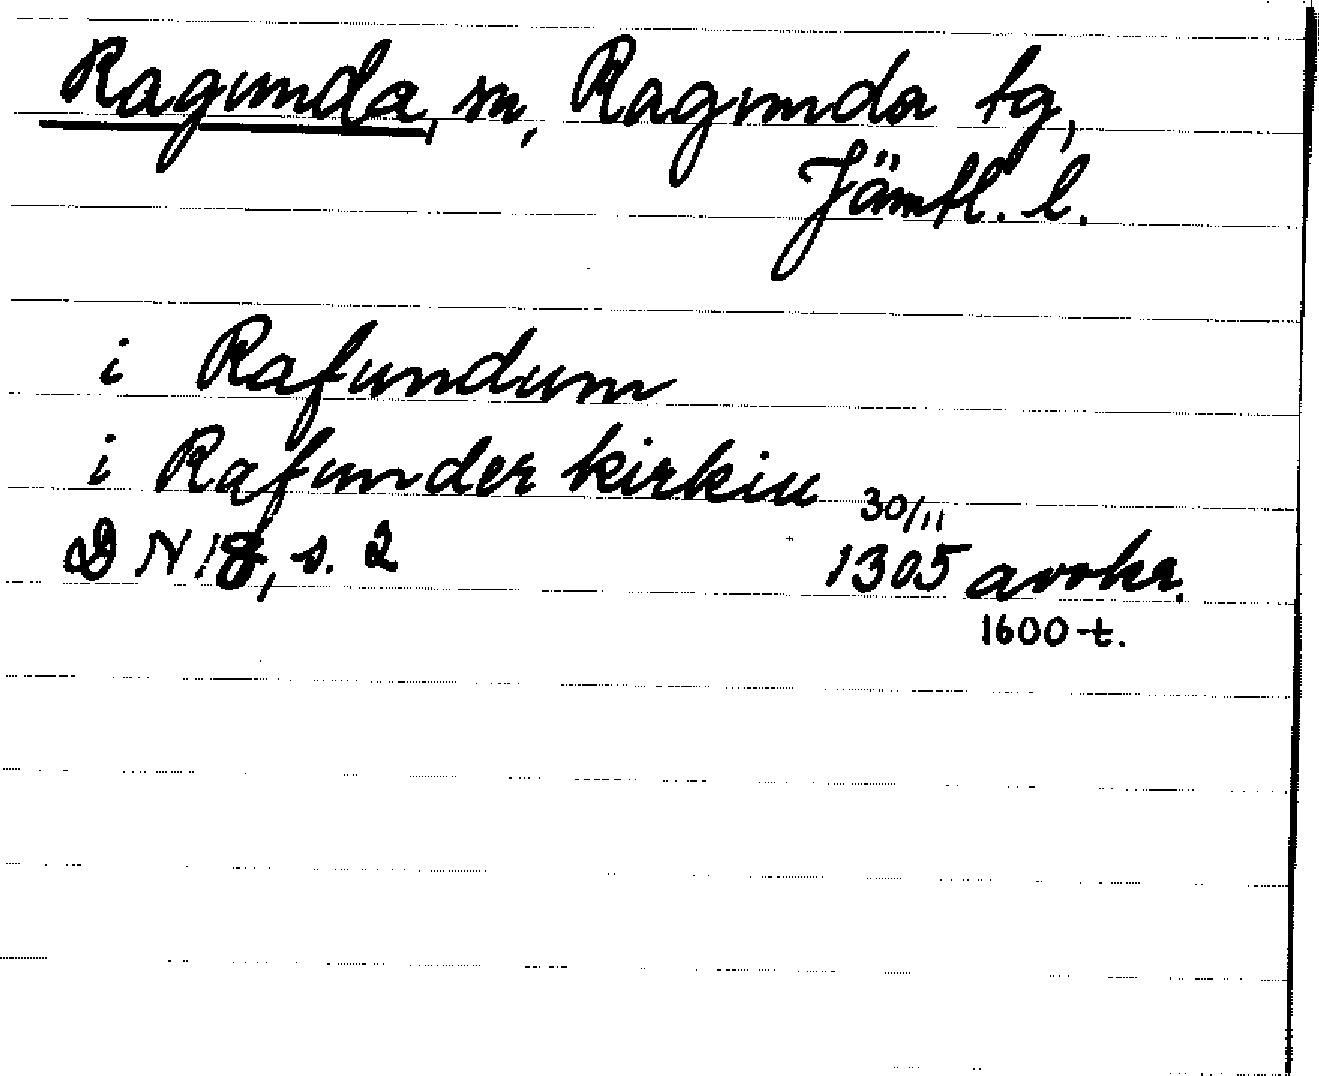 Ragunda, sn, Ragunda tg,
Jämtl. l.
i Rafundum
i Rafunder kirkiu
30/11
D N 18, s. 2 1305 avskr.
1600-t.